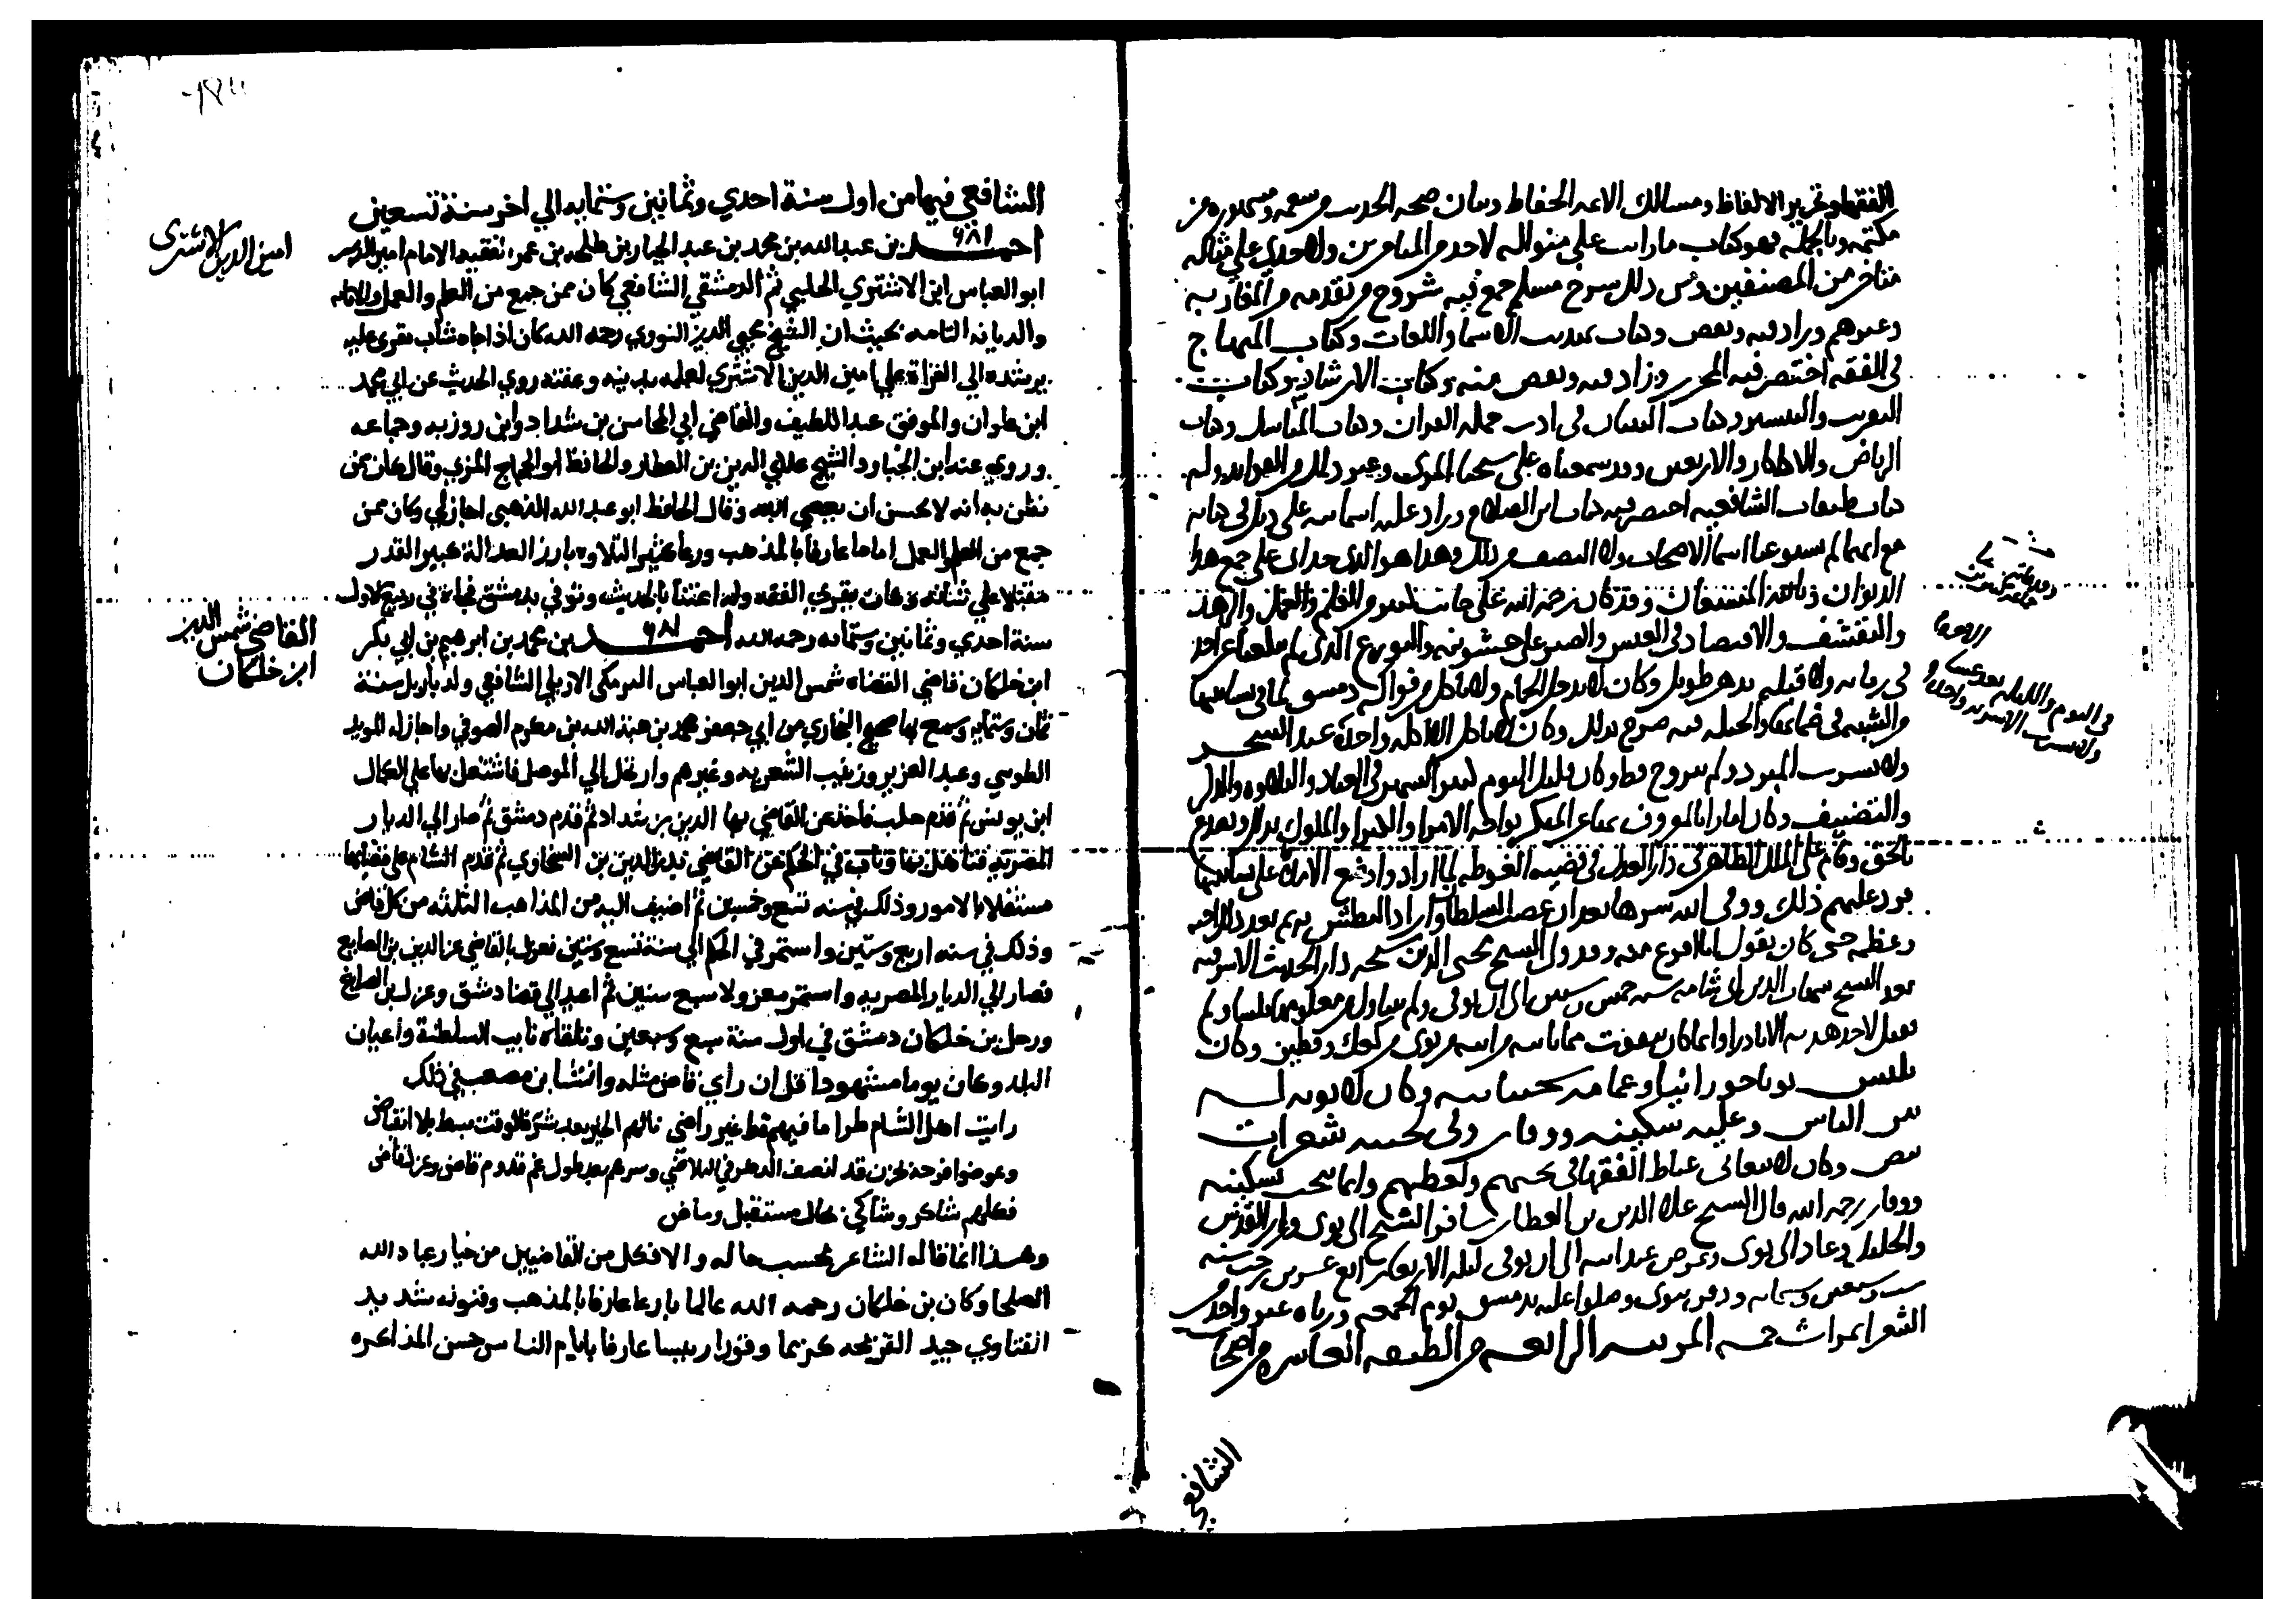 الفقها وتحرير الالفاظ ومسالك الايمه الحفاظ وبيان صحه الحديث من سقمه ومشهوره من
وبالجمله فهو كتاب ما رايت على منواله لاحد من المتقدمين ولا حذي على مثاله
متاخر من المصنفين ومن ذلك شرح مسلم جمع فيه شروح من تقدمه من المغاربه
وغيرهم وزاد فيه ونقص وكتاب تهذيب الاسما واللغات وكتاب المنهاج
في الفقه اختصر فيه المحرر وزاد فيه ونقص منه وكتاب الارشاد وكتاب
التقريب والتيسير وكتاب التبيان في اداب حمله القران وكتاب المناسك وكتاب
الرياض والاذكار والاربعين وقد سمعناه على شيخنا المزي وغير ذلك من الفوايد وله
كتاب طبقات الشافعيه اختصر فيه كتاب ابن الصلاح وزاد عليه اسما نبه على ذلك في كتابه
مع انهما لم يستوعبا اسما الاصحاب ولا النصف من ذلك وهذا هو الذي حداني على جمع هذا
الديوان وبالله المستعان وقد كان رحمه الله على جانب كبير من العلم والعمل والزهد
والتقشف والاقتصاد في العيش والصبر على خشونته والتورع الذي لم يبلغنا عن احد
في زمانه ولا قبله بدهر طويل وكان لا يدخل الحمام ولا ياكل من فواكه دمشق لما في بساتينها
من الشبه في ضمانها والحيله فيه صرح بذلك وكان لا ياكل الا اكله واحدة عند السحر
ولا يشرب المبرد ولم يتزوج قط وكان قليل النوم كثير السهر في العباده والتلاوه والذكر
والتصنيف وكان امارا بالمعروف نهاء عن المنكر يواجه الامرا والكبرا والملوك بذلك ويصدع
بالحق وقام على الملك الظاهر في دار العدل في قضيه الغوطه لما ارادوا وضع الاملاك على بساتينها
فرد عليهم ذلك ووقى الله شرها بعد ان غضب السلطان واراد البطش به ثم بعد ذلك احبه
وعظمه حتى كان يقول انا افزع منه وقد ولي الشيخ محيي الدين مشيخه دار الحديث الاشرفيه
بعد الشيخ شهاب الدين ابي شامه سنه خمس وستين الى ان توفي ولم يتناول من معلومها فلسا ولم
يقبل لاحد هديه الا نادرا وانما كان يتقوت مما ياتيه من ابيه من نوى من كعك وقطين وكان
يلبس ثوبا حورانيا وعمامه سختيانيه وكان لا يوبه له
بين الناس وعليه سكينه ووقار وفي لحيته شعرات
بيض وكان لا يتعانى عياط الفقها في بحثهم ولغطهم وانما يبحث بسكينه
ووقار رحمه الله قال الشيخ علا الدين بن العطار سافر الشيخ الى نوى وزار القدس
والخليل وعاد الى نوى ومرض عند ابيه الى ان توفي ليله الاربعا رابع عشرين رجب سنه
ست وسبعين وستمايه ودفن بنوى وصلوا عليه بدمشق يوم الجمعه ورثاه غير واحد من
الشعرا بمراث حسنه المرتبه الرابعه من الطبقه العاشره من اصحاب
في اليوم والليله بعد عشا
ولا يشرب الا شربه واحده
الشافعي
الشافعي فيها من اول سنة احدي وثمانين وستمايه الي اخر سنة تسعين
٦٨١
احمد بن عبد الله بن محمد بن عبد الجبار بن طلحه بن عمر الفقيه الامام امين الدين
ابو العباس ابن الاشتري الحلبي ثم الدمشقي الشافعي كان ممن جمع من العلم والعمل والانابه
والديانه التامه بحيث ان الشيخ محيي الدين النووي رحمه الله كان اذا جاه شاب يقري عليه
يرشده الي القراة علي امين الدين الاشتري لعلمه بدينه وعفته روي الحديث عن ابي محمد
ابن علوان والموفق عبد اللطيف والقاضي ابي المحاسن بن شداد وابن روزبه وجماعه
وروي عنه ابن الخباز والشيخ علاي الدين بن العطار والحافظ ابو الحجاج المزي وقال كان ممن
نظن به انه لا يحسن ان يعصي الله وقال الحافظ ابو عبد الله الذهبي اجاز لي وكان ممن
جمع من العلم والعمل اماما عارفا بالمذهب ورعا كثير التلاوه بارز العدالة كبير القدر
مقبلا علي شانه وكان يقري الفقه وله اعتنا بالحديث وتوفي بدمشق فجاة في ربيع الاول
سنة احدي وثمانين وستمايه رحمه الله احمد ٦٨١ بن محمد بن ابرهيم بن ابي بكر
ابن خلكان قاضي القضاه شمس الدين ابو العباس البرمكي الاربلي الشافعي ولد باربل سنة
ثمان وستمايه وسمع بها صحيح البخاري من ابي جعفر محمد بن هبة الله بن مكرم الصوفي واجاز له المويد
الطوسي وعبد العزيز وزينب الشعريه وغيرهم وارتحل الي الموصل فاشتغل بها علي الكمال
ابن يونس ثم قدم حلب فاخذ عن القاضي بها الدين بن شداد ثم قدم دمشق ثم صار الي الديار
المصريه فتاهل بها وناب في الحكم عن القاضي بدر الدين بن السخاوي ثم قدم الشام علي قضايها
مستقلا بالامور وذلك في سنه تسع وخمسين ثم اضيف اليه من المذاهب الثلثه من كل قاض
وذلك في سنه اربع وستين واستمر في الحكم الي سنة تسع وستين فعزل بالقاضي عز الدين بن الصايغ
فصار الي الديار المصريه واستمر معزولا سبع سنين ثم اعيد الي قضا دمشق وعزل بن الصايغ
ودخل بن خلكان دمشق في اول سنة سبع وسبعين وتلقاه نايب السلطنة واعيان
البلد وكان يوما مشهودا قل ان راي قاض مثله وانشا ابن مصعب في ذلك
رايت اهل الشام طرا ما فيهم قط غير راضي نالهم الخير بعد شر فالوقت بسط بلا انقباض
وعوضوا فرحة بحزن قد انصف الدهر في التلاقي وسرهم بعد طول غم قدوم قاض وعزل قاض
فكلهم شاكر وشاكي بحال مستقبل وماض
وهذا انما قاله الشاعر بحسب حاله والا فكل من القاضيين من خيار عباد الله
الصلحا وكان بن خلكان رحمه الله عالما بارعا عارفا بالمذهب وفنونه شديد
الفتاوي جيد القريحه كريما وقورا رييسا عارفا بايام الناس حسن المذاكره
امين الدين الاشتري
القاضي شمس الدين
ابن خلكان